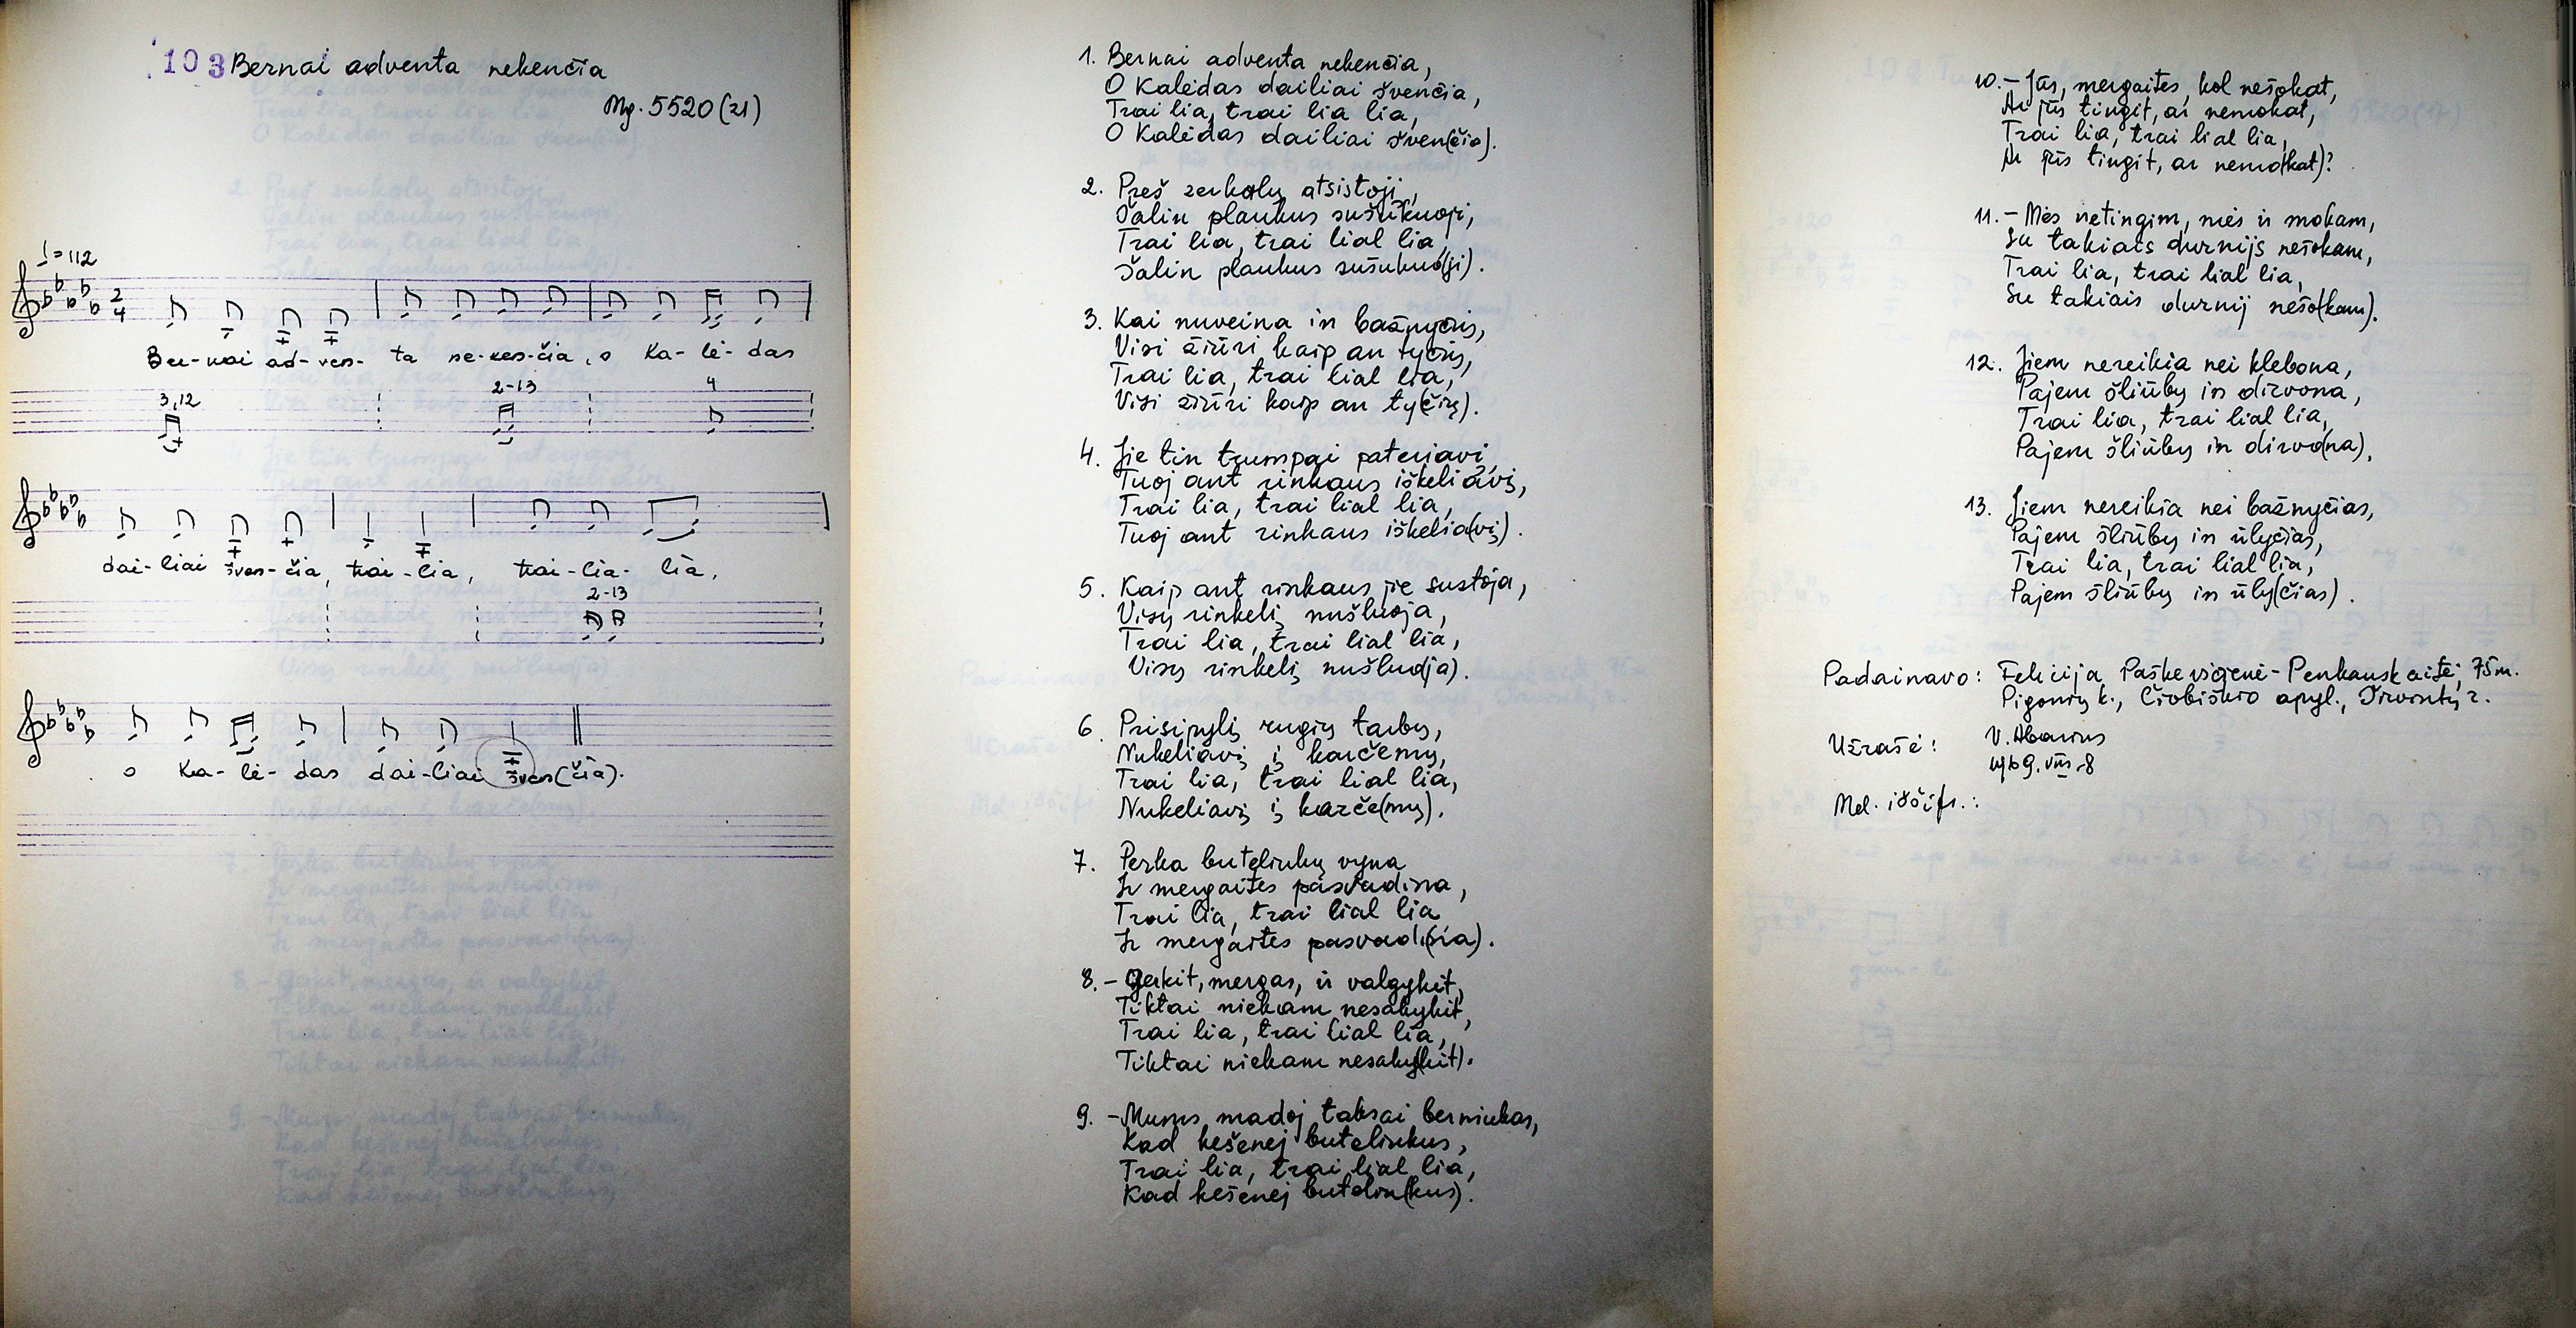 103 Bernai adventa nekenčia
Mg. 5520(21)
♩=112
2/4
Ber-nai ad-ven- ta ne-ken-čia, o Ka- lė- das
3,12 2-13 4
dai-liai šven-čia, trai-lia, trai-lia- lia,
2-13
o Ka-lė-das dai-liai šven(čia).
1. Bernai adventa nekenčia,
O Kalėdas dailiai švenčia,
Trai lia, trai lia lia,
O Kalėdas dailiai šven(čia).
2. Preš zerkolų atsistoji,
Šalin plaukus sušukuoji,
Trai lia, trai lial lia,
Šalin plaukus sušukuo(ji).
3. Kai nuveina in bažnyčių,
Visi žiūri kaip an tyčių,
Trai lia, trai lial lia,
Visi žiūri kaip an ty(čių).
4. Jie tin trumpai pateriavį,
Tuoj ant rinkaus iškeliavį,
Trai lia, trai lial lia,
Tuoj ant rinkaus iškelia(vį).
5. Kaip ant rinkaus jie sustoja,
Visų rinkelį nušluoja,
Trai lia, trai lial lia,
Visų rinkelį nušluo(ja).
6. Prisipylį rugių tarbų,
Nukeliavį į karčemų,
Trai lia, trai lial lia,
Nukeliavį į karče(mų).
7. Perka buteliukų vyna
Ir mergaites pasvadina,
Trai lia, trai lial lia
Ir mergaites pasvadi(na).
8. – Gerkit, mergas, ir valgykit,
Tiktai niekam nesakykit,
Trai lia, trai lial lia,
Tiktai niekam nesaky(kit).
9. – Mums madoj taksai berniukas,
Kad kešenej buteliukus,
Trai lia, trai lial lia,
Kad kešenej buteliu(kus).
10. – Jūs, mergaites, kol nešokat,
Ar jūs tingit, ar nemokat,
Trai lia, trai lial lia,
Ar jūs tingit, ar nemo(kat)?
11. – Mes netingim, mes ir mokam,
Su takiais durnijs nešokam,
Trai lia, trai lial lia,
Su takiais durnij nešo(kam).
12. Jiem nereikia nei klebona,
Pajem šliūbų in dirvona,
Trai lia, trai lial lia,
Pajem šliūbų in dirvo(na),
13. Jiem nereikia nei bažnyčias,
Pajem šliūbų in ūlyčias,
Trai lia, trai lial lia,
Pajem šliūbų in ūly(čias).
Padainavo: Felicija Paškevičienė-Penkauskaitė, 75m.
Pigonių k., Čiobiškio apyl., Širvintų r.
Užrašė: V.
1969.VIII.8
Mel. iššifr.: